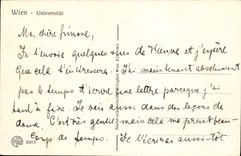 Wien - Universität
Ma chère Simone,
Je t'envoie quelques vues de Vienne et j'espère
que cela t'intéressera. J'ai maintenant absolument
pas le temps d'écrire une lettre parceque j'ai
haut à faire. Je vais aussi dans des leçons de
danse. C'est très gentil mais cela me prend beau-
coup de temps. Je t'écrirai aussi-tôt